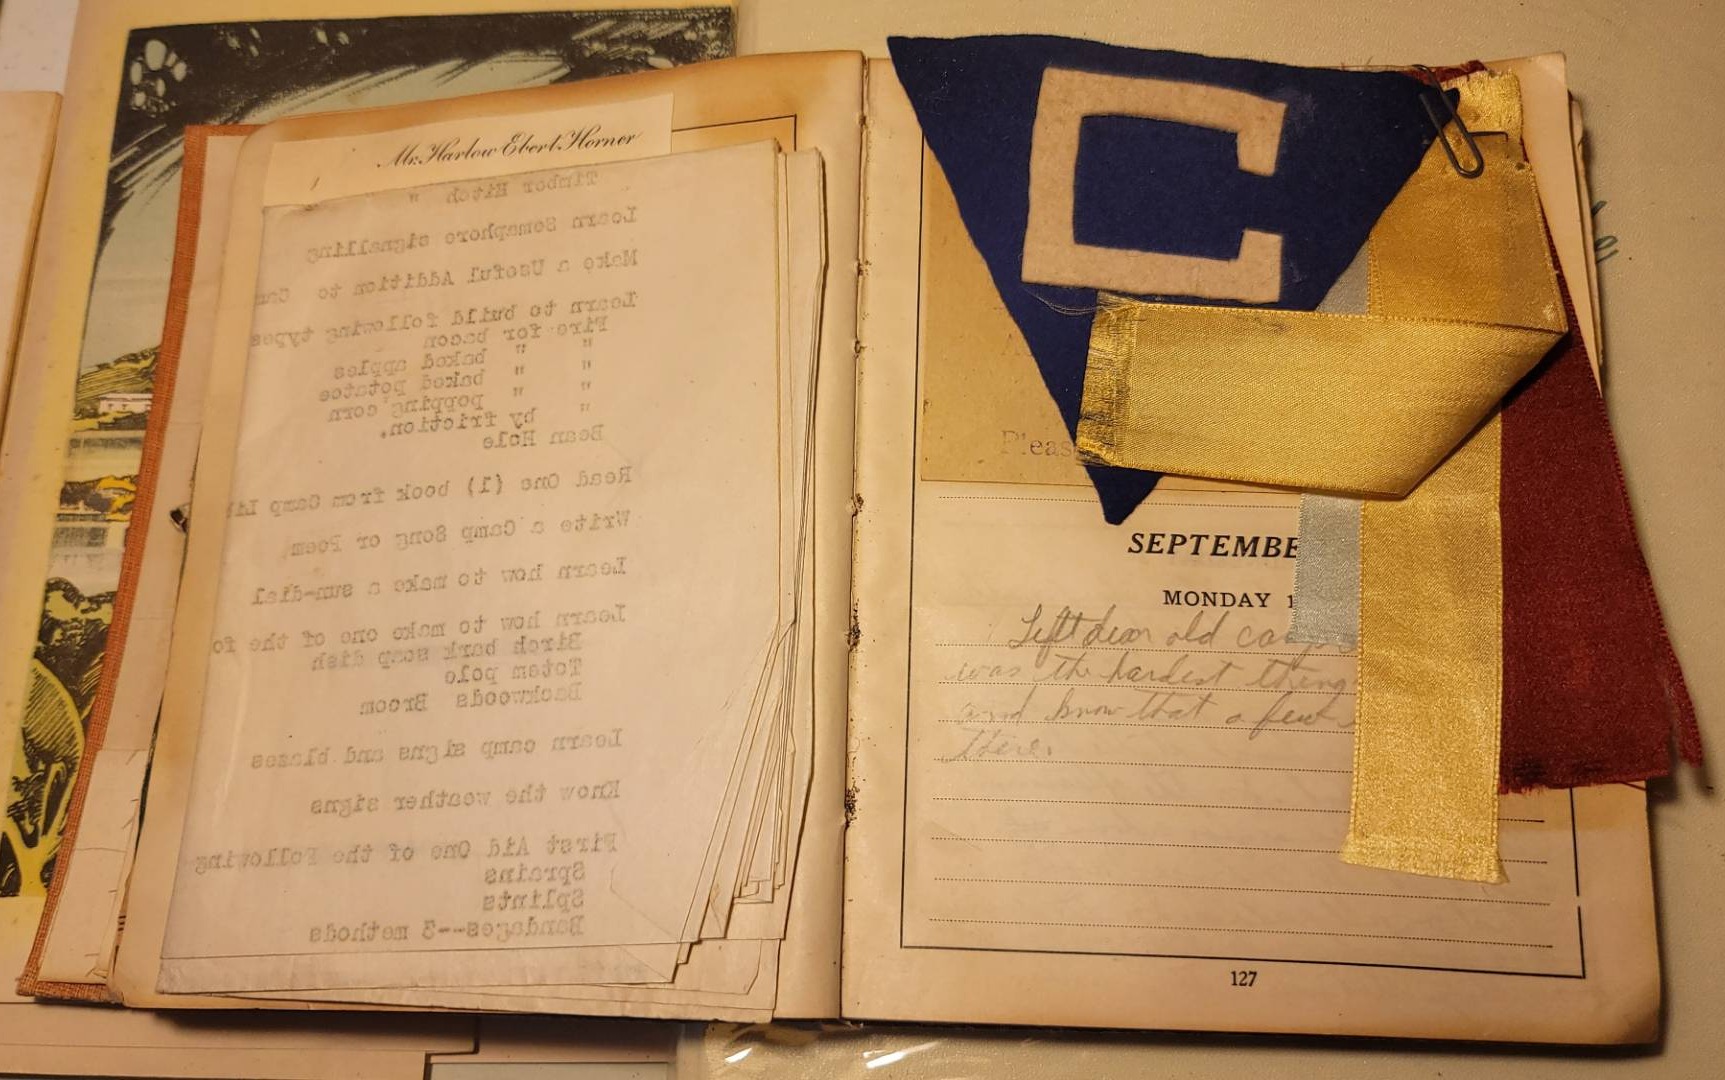 Mr. Harlow Ebert Horner
Timber Hitch "
Learn Semaphore signalling
Make a Useful Addition to Cam
Learn to build following types
Fire for bacon
" " baked apples
" " baked potatoe
" " popping corn
" by friction.
Bean Hole
Read One (1) book from Camp Li
Write a Camp Song or Poem
Learn how to make a sun-dial
Learn how to make one of the fo
Birch bark soap dish
Totem pole
Backwoods Broom
Learn camp signs and blazes
Know the weather signs
First Aid One of the Following
Sprains
Splints
Bandages--3 methods
C
Pleas
SEPTEMBE
MONDAY 1
Left dear old camp
was the hardest thing
and know that a few
there.
127